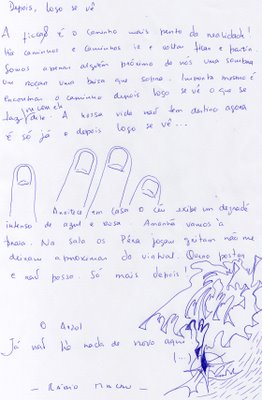 Depois, logo se vê
A ficção é o caminho mais perto da realidade!
Há caminhos e caminhos ir e voltar ficar e partir.
Somos apenas alguém próximo de nós uma sombra
um roçar uma brisa que sobra. Importa mesmo é
encontrar o caminho depois logo se vê o que se
faz/disse. A nossa vida não tem destino agora
é só já o depois logo se vê...
Anoitece em casa o céu exibe um degradé
intenso de azul e rosa. Amanhã vamos à
praia. Na sala os Pêra jogam gritam não me
deixam aproximar do virtual. Quero postar
e não posso. Só mais depois!
O Anzol
Já não há nada de novo aqui
(...)